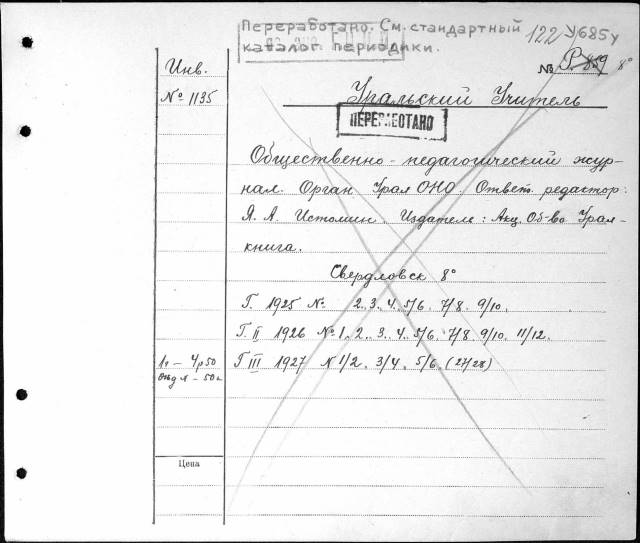 Переработано. См. стандартный
каталог периодики.
122 У/685у
№ Р. 859 8°
Инв.
№ 1135
Уральский Учитель
ПЕРЕРАБОТАНО
Общественно-педагогический жур-
нал. Орган Урал ОНО Ответ. редактор:
Я. А. Истомин. Издатель: Акц. Об-во Урал-
книга.
Свердловск 8°
Г. 1925 № 2. 3. 4. 5/6. 7/8. 9/10.
Г. II 1926 № 1. 2. 3. 4. 5/6. 7/8. 9/10. 11/12.
Г III 1927 N 1/2. 3/4. 5/6. (27/28)
1г – 4р50
Отд N – 50к
Цена